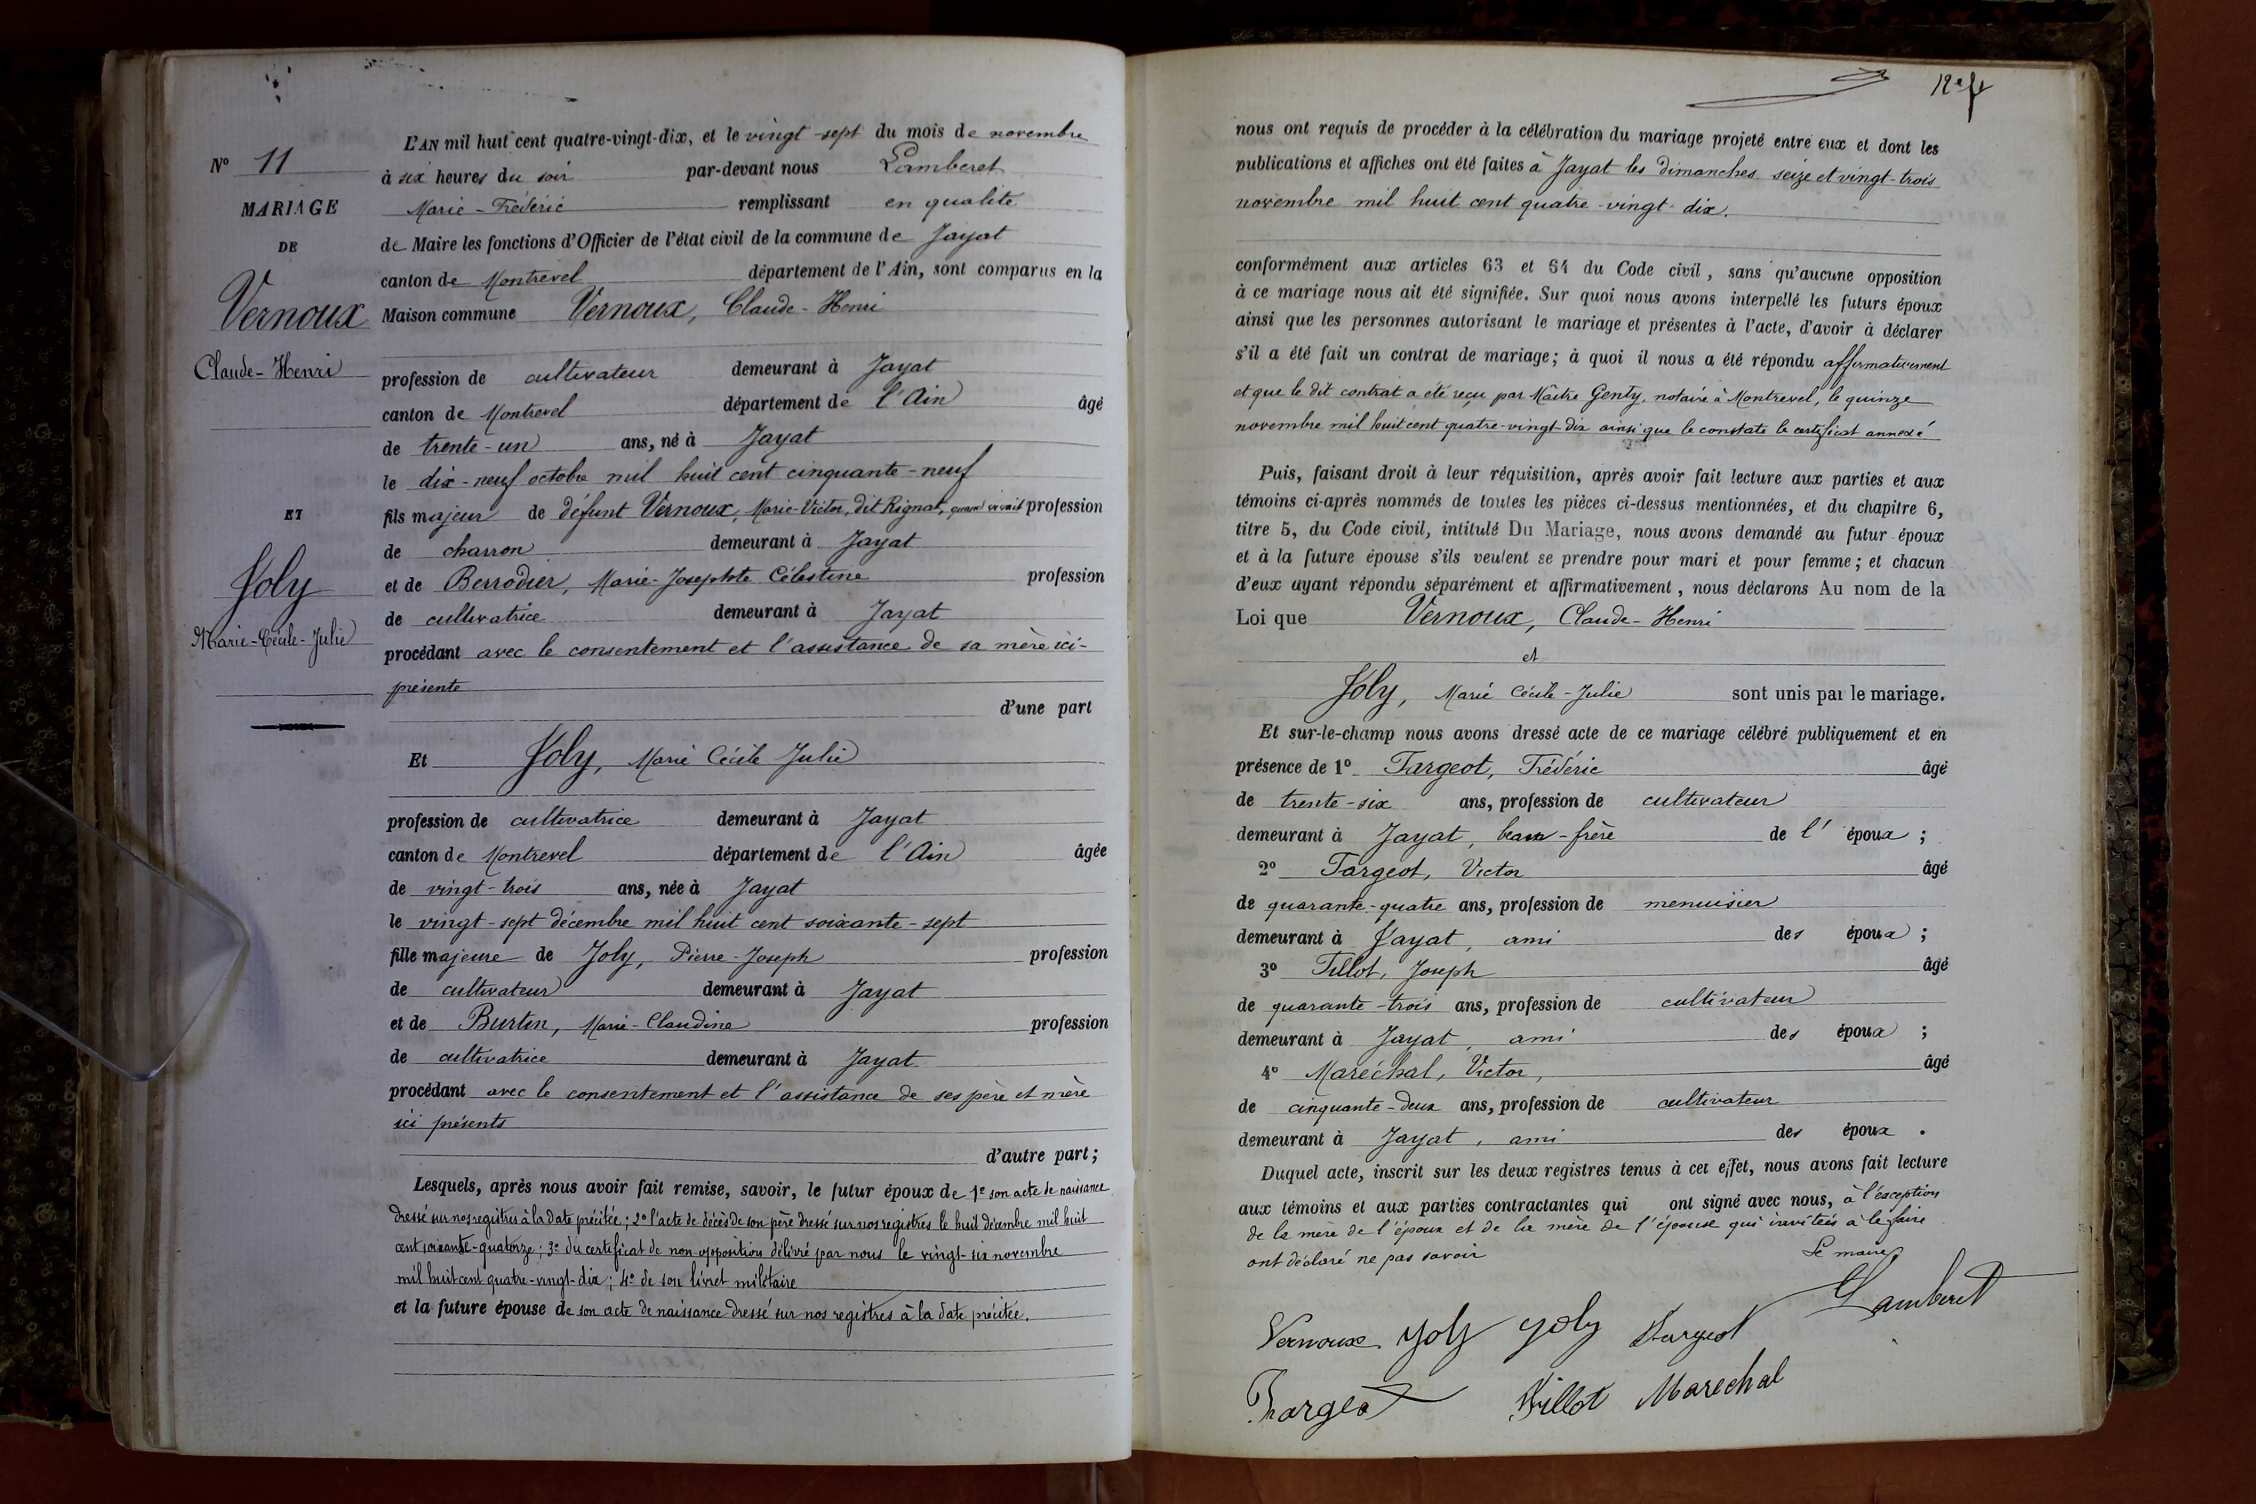 N° 11
MARIAGE
DE
Vernoux
Claude-Henri
ET
Joly
Marie-Cécile-Julie
L'AN mil huit cent quatre-vingt-dix, et le vingt-sept du mois de novembre
à six heures du soir par-devant nous Lamberet
Marie-Frédéric remplissant en qualité
de Maire les fonctions d'Officier de l'état civil de la commune de Jayat
canton de Montrevel département de l'Ain, sont comparus en la
Maison commune Vernoux, Claude-Henri
profession de cultivateur demeurant à Jayat
canton de Montrevel département de l'Ain âgé
de trente-un ans, né à Jayat
le dix-neuf octobre mil huit cent cinquante-neuf
fils majeur de défunt Vernoux, Marie-Victor, dit Rignat, quand vivait profession
de charron demeurant à Jayat
et de Berrodier, Marie-Josephte Célestine profession
de cultivatrice demeurant à Jayat
procédant avec le consentement et l'assistance de sa mère ici-
présente
d'une part
Et Joly, Marie Cécile Julie
profession de cultivatrice demeurant à Jayat
canton de Montrevel département de l'Ain âgée
de vingt-trois ans, née à Jayat
le vingt-sept décembre mil huit cent soixante-sept
fille majeure de Joly, Pierre-Joseph profession
de cultivateur demeurant à Jayat
et de Burtin, Marie-Claudine profession
de cultivatrice demeurant à Jayat
procédant avec le consentement et l'assistance de ses père et mère
ici présents
d'autre part;
Lesquels, après nous avoir fait remise, savoir, le futur époux de 1° son acte de naissance
dressé sur nos registres à la date précitée; 2° l'acte de décès de son père dressé sur nos registres le huit décembre mil huit
cent soixante-quatorze; 3° du certificat de non opposition délivré par nous le vingt-six novembre
mil huit cent quatre-vingt-dix; 4° de son livret militaire
et la future épouse de son acte de naissance dressé sur nos registres à la date précitée.
nous ont requis de procéder à la célébration du mariage projeté entre eux et dont les
publications et affiches ont été faites à Jayat les dimanches seize et vingt-trois
novembre mil huit cent quatre-vingt-dix.
conformément aux articles 63 et 64 du Code civil, sans qu'aucune opposition
à ce mariage nous ait été signifiée. Sur quoi nous avons interpellé les futurs époux
ainsi que les personnes autorisant le mariage et présentes à l'acte, d'avoir à déclarer
s'il a été fait un contrat de mariage; à quoi il nous a été répondu affirmativement
et que le dit contrat a été reçu par Maître Genty, notaire à Montrevel, le quinze
novembre mil huit cent quatre-vingt-dix ainsi que le constate le certificat annexé
Puis, faisant droit à leur réquisition, après avoir fait lecture aux parties et aux
témoins ci-après nommés de toutes les pièces ci-dessus mentionnées, et du chapitre 6,
titre 5, du Code civil, intitulé Du Mariage, nous avons demandé au futur époux
et à la future épouse s'ils veulent se prendre pour mari et pour femme; et chacun
d'eux ayant répondu séparément et affirmativement, nous déclarons Au nom de la
Loi que Vernoux, Claude-Henri
et
Joly, Marie Cécile-Julie sont unis par le mariage.
Et sur-le-champ nous avons dressé acte de ce mariage célébré publiquement et en
présence de 1° Fargeot, Frédéric âgé
de trente-six ans, profession de cultivateur
demeurant à Jayat, beau-frère de l'époux;
2° Fargeot, Victor âgé
de quarante-quatre ans, profession de menuisier
demeurant à Jayat, ami des époux;
3° Tillot, Joseph âgé
de quarante-trois ans, profession de cultivateur
demeurant à Jayat, ami des époux;
4° Maréchal, Victor, âgé
de cinquante-deux ans, profession de cultivateur
demeurant à Jayat, ami des époux.
Duquel acte, inscrit sur les deux registres tenus à cet effet, nous avons fait lecture
aux témoins et aux parties contractantes qui ont signé avec nous, à l'exception
de la mère de l'époux et de la mère de l'épouse qui invitées à le faire
ont déclaré ne pas savoir Le maire
Lamberet
Vernoux Joly Joly Fargeot
Fargeot Tillot Marechal